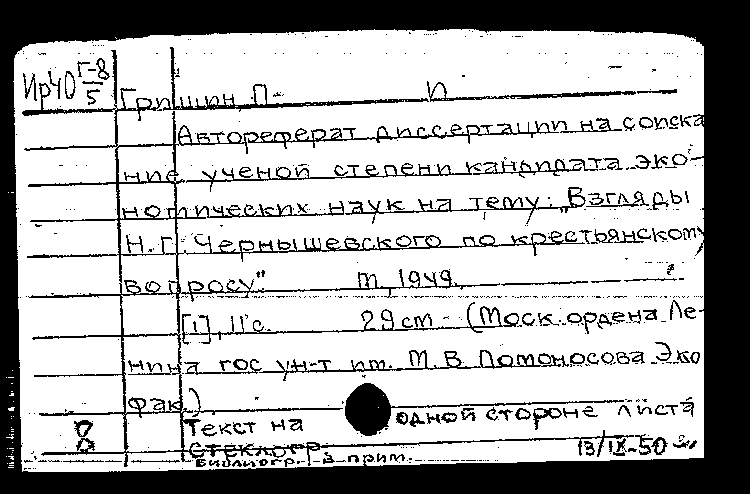 Ир40 Г-8/5
Гришин, П. И
Автореферат диссертации на соиска
ние ученой степени кандидата эко-
номических наук на тему: „Взгляды
Н.Г. Чернышевского по крестьянскому
вопросу."  М., 1949.
[1], 11 с.  29 см - (Моск. ордена Ле-
нина гос ун-т им. М.В. Ломоносова Эко
фак.)
Текст на одной стороне листа
Стеклогр.
Библиогр. в прим.
13/IX-50